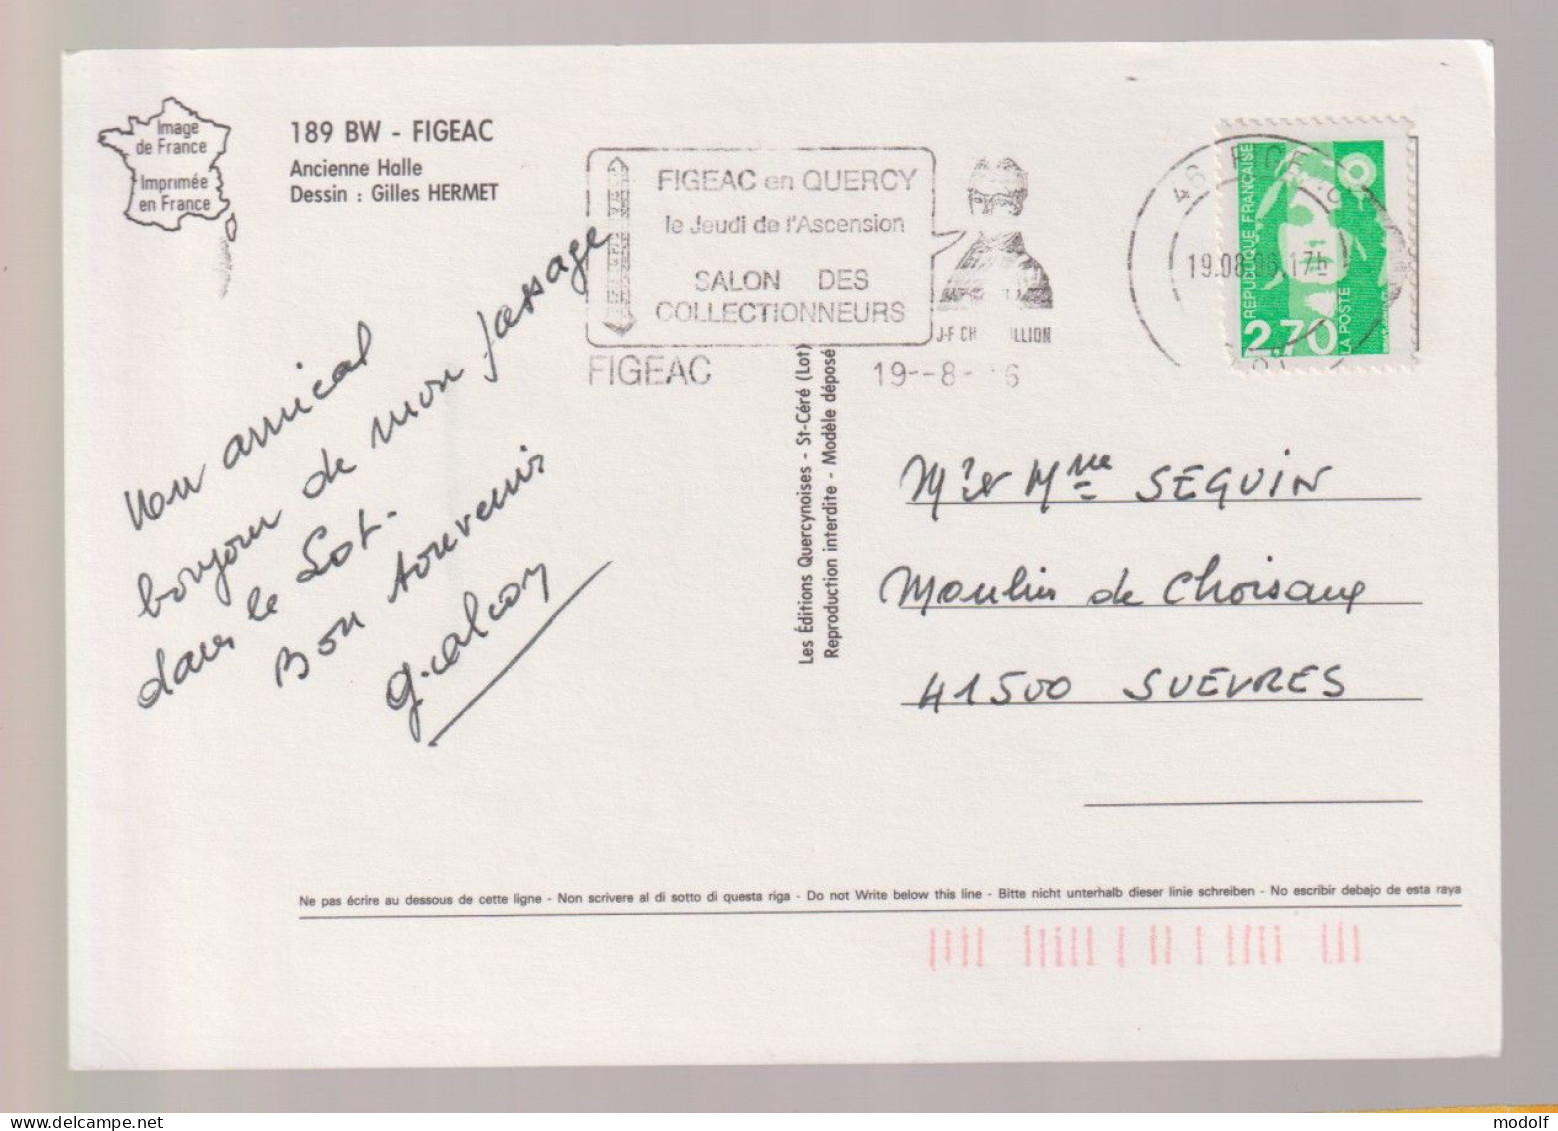 Image
de France
Imprimée
en France
189 BW - FIGEAC
Ancienne Halle
Dessin : Gilles HERMET
FIGEAC en QUERCY
le Jeudi de l'Ascension
SALON DES
COLLECTIONNEURS
FIGEAC
J-F CH ILLION
19--8- 6
46 FIGEAC
19.08.96.17h
LOT
REPUBLIQUE FRANÇAISE
2,70
LA POSTE
Mon amical
bonjour de mon passage
dans le Lot.
Bon souvenir
Les Éditions Quercynoises - St-Céré (Lot)
Reproduction interdite - Modèle déposé
Mr et Mme SEGUIN
Moulin de Choisaux
41500 SUEVRES
Ne pas écrire au dessous de cette ligne - Non scrivere al di sotto di questa riga - Do not Write below this line - Bitte nicht unterhalb dieser linie schreiben - No escribir debajo de esta raya
modolf